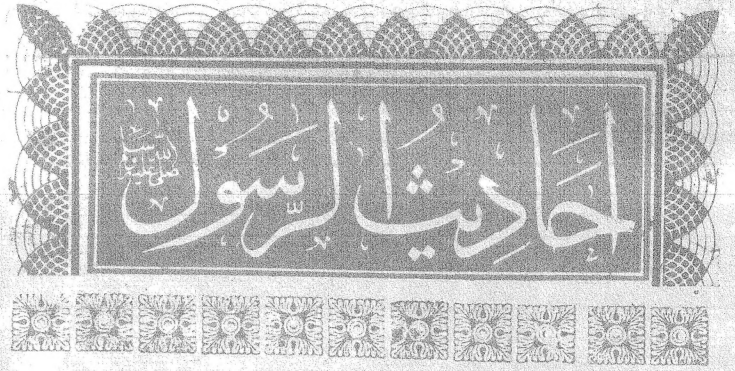 اَحَادِيثُ الرَّسُول ﷺ